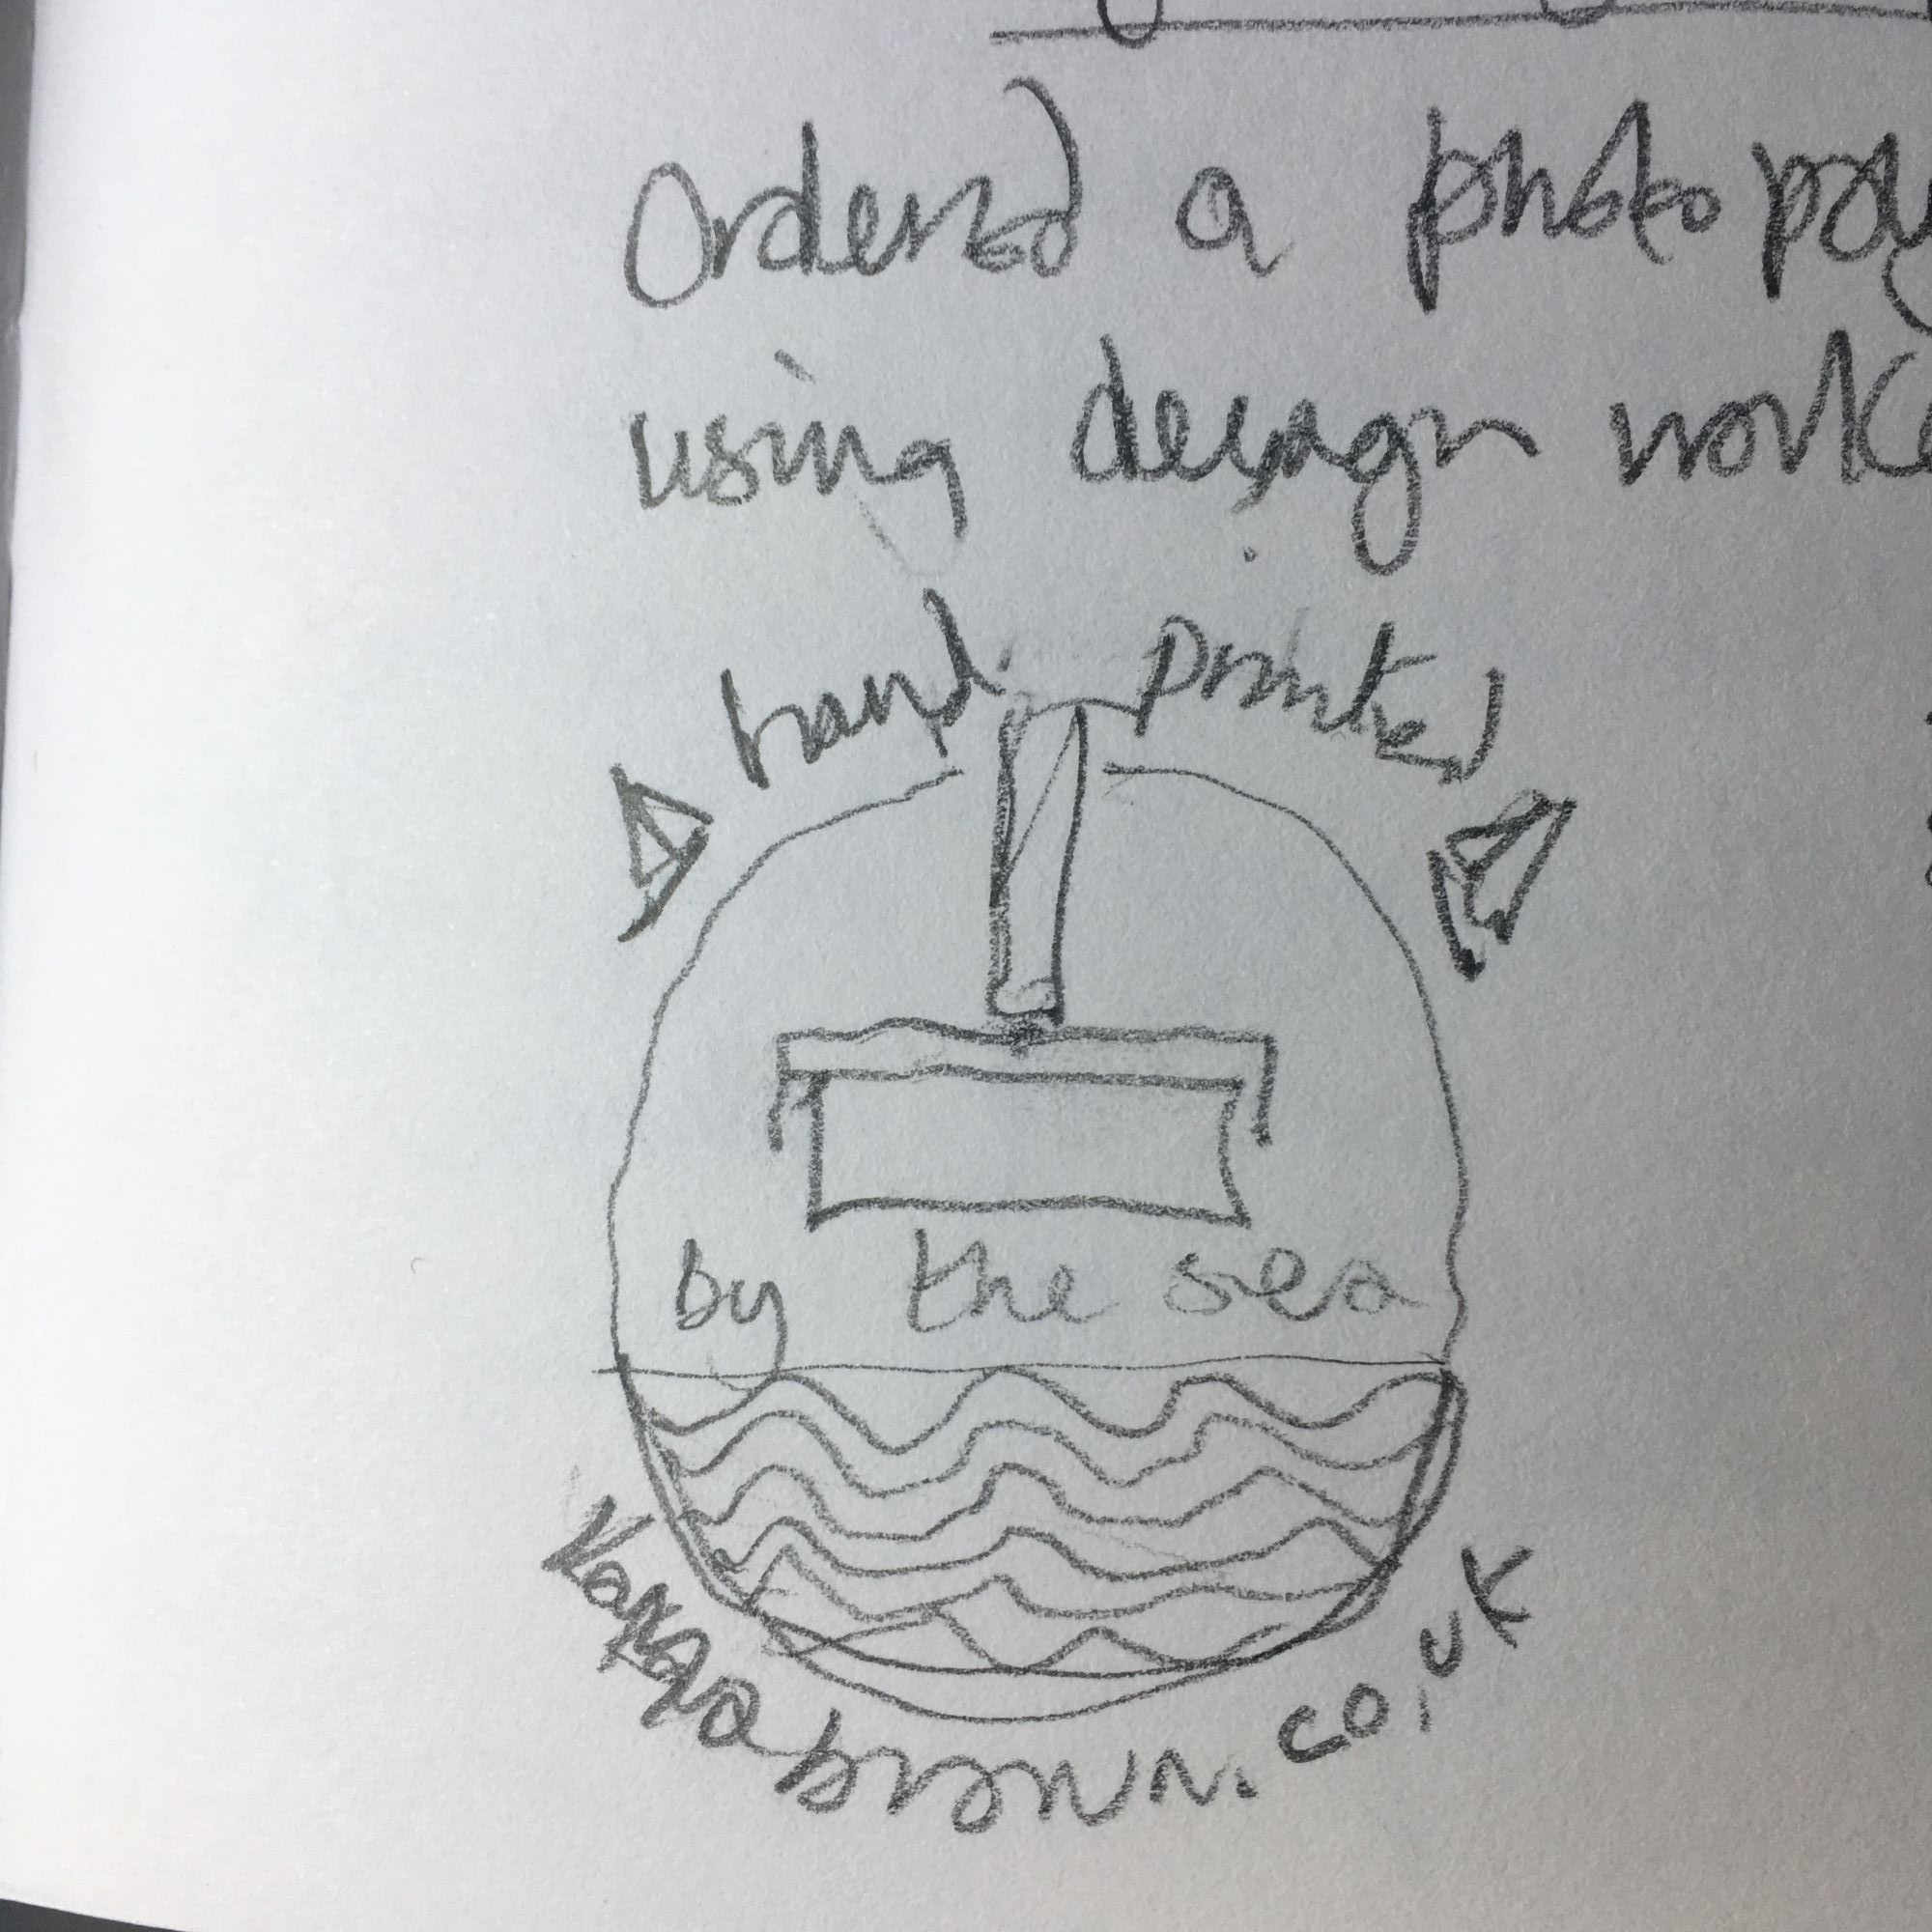 Ordered a photo poly
using design work
hand printed
by the sea
brown.co.uk